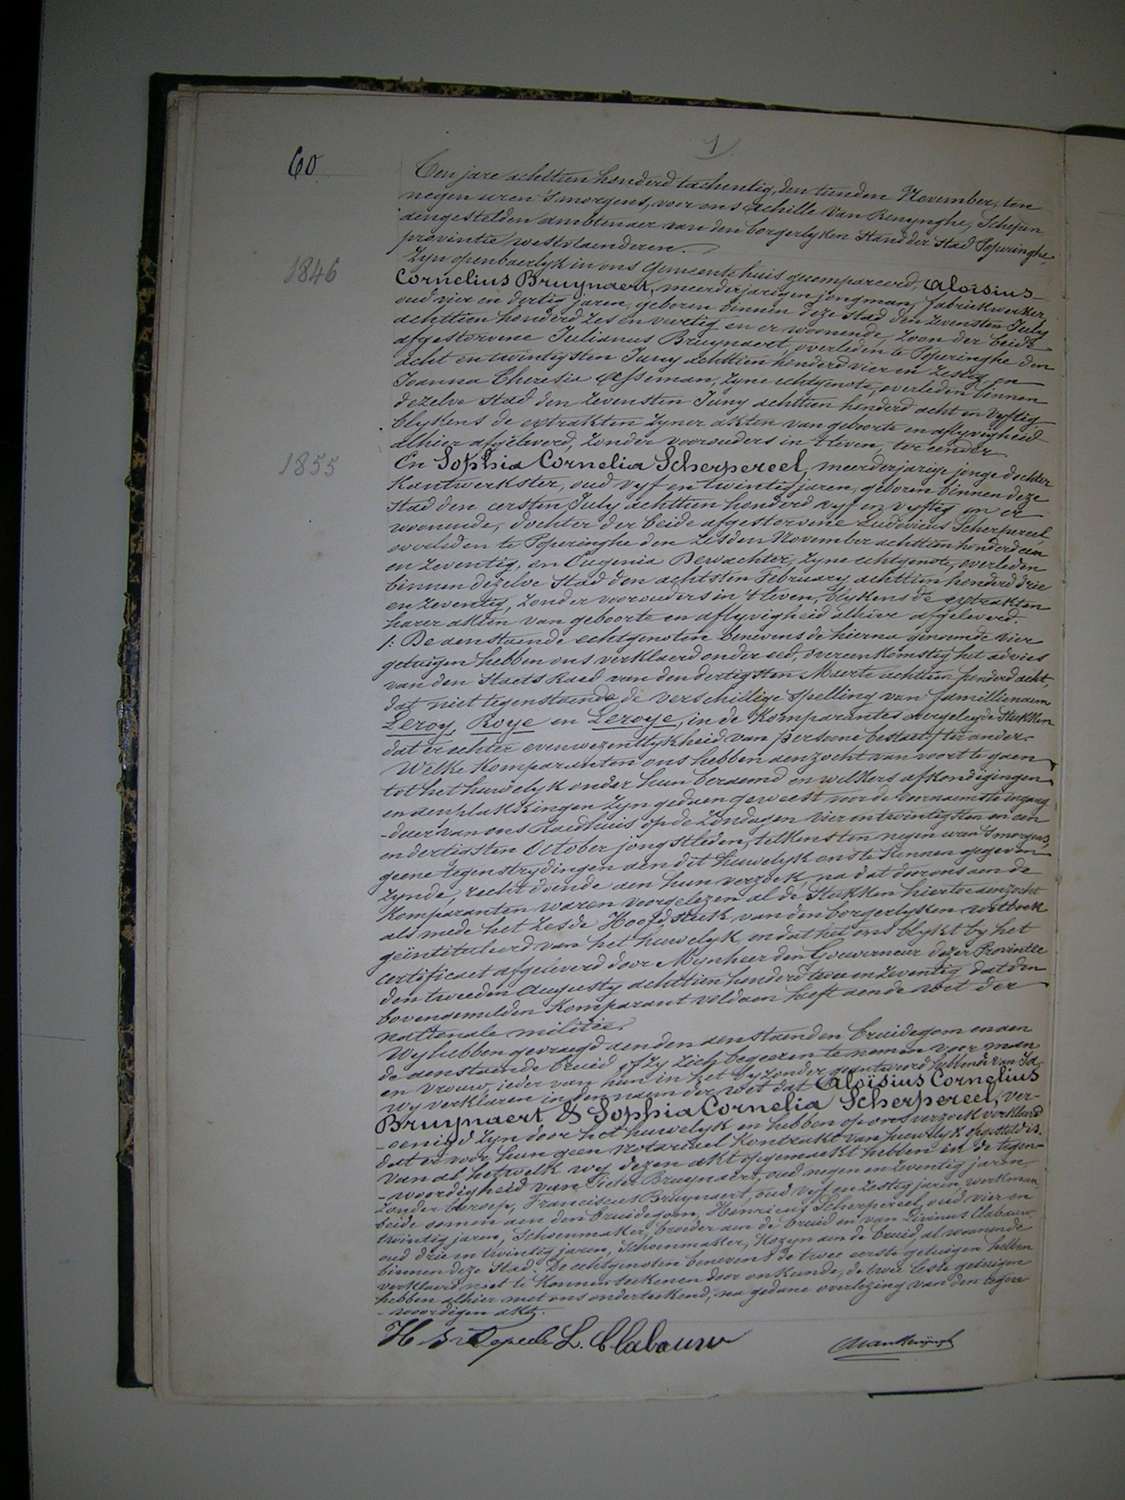 1
60
Ten jare achttien honderd tachentig, den tweeden November, ten
negen uren 's morgens, voor ons Achille Van Renynghe, Schepen
aengestelden ambtenaer van den borgerlyken Stand der Stad Poperinghe,
provintie westvlaenderen.
Zyn openbaerlyk in ons Gemeentehuis gecompareerd, Aloïsius
1846
Cornelius Bruynaert, meerderjarigen jongman, fabriekwerker,
oud vier en dertig jaren, geboren binnen deze Stad den zevensten July
achttien honderd zes en veertig en er woonende, zoon der beide
afgestorvene Julianus Bruynaert, overleden te Poperinghe den
acht en twintigsten Juny achttien honderd vier en zestig en
Joanna Theresia, zyne echtgenote, overleden binnen
dezelve Stad den zevensten Juny achttien honderd acht en vyftig
blykens de extrakten zyner akten van geboorte en aflyvigheid
alhier afgeleverd, zonder voorouders in 't leven, ter eender
1855
En Sophia Cornelia Scherpereel, meerderjarige jonge dochter
Kantwerkster, oud vyf en twintig jaren, geboren binnen deze
Stad den eersten July achttien honderd vyf en vyftig en er
woonende, dochter der beide afgestorvene Ludovicus Scherpereel,
overleden te Poperinghe den zesden November achttien honderd een
en zeventig, en Eugenia Dewachter, zyne echtgenote, overleden
binnen dezelve Stad den achtsten February achttien honderd drie
en zeventig, zonder voorouders in 't leven, blykens de extrakten
harer akten van geboorte en aflyvigheid alhier afgeleverd.
1: De aenstaende echtgenoten benevens de hierna genoemde vier
getuigen hebben ons verklaerd onder eed, overeenkomstig het advies
van den Staets Raed van den dertigsten Maerte achttien honderd acht,
dat niet tegenstaende de verschillige spelling van famillienaem
Leroy, Roye en Leroye, in de komparantes overgelegde Stukken
dat er echter evenwezentlykheid van persone bestaet, ter ander.
Welke komparanten ons hebben aenzocht van voort te gaen
tot het huwelyk onder hun beraemd en welkers afkondigingen
en aenplakkingen zyn gedaen geweest voor de voornaemste ingang
-deur van ons Raedhuis op de zondagen vier en twintigsten en een
en dertigsten October jongstleden, telkens ten negen uren 's morgens,
geene tegenstrydingen aen dit huwelyk ons te kennen gegeven
zynde, recht doende aen hun verzoek, na dat door ons aen de
komparanten waren voorgelezen al de Stukken hiertoe aenzocht
als mede het zesde Hoofdstuk van den borgerlyken wetboek
geïntituleerd van het huwelyk, en dat het ons blykt by het
certificaet afgeleverd door Mynheer den Gouverneur dezer Provintie
den tweeden Augusty achttien honderd twee en zeventig dat den
bovengemelden komparant voldaen heeft aen de wet der
nationale militie.
Wy hebben gevraegd aen den aenstaenden bruidegom en aen
de aenstaende bruid of zy zich begeeren te nemen voor man
en vrouw, ieder van hun in het byzonder geantwoord hebbende van Ja,
wy verklaren in den naem der wet dat Aloïsius Cornelius
Bruynaert & Sophia Cornelia Scherpereel, ver-
eenigd zyn door het huwelyk en hebben op ons verzoek verklaerd
dat er voor hun geen notarieel Kontrakt van huwelyk opgesteld is.
Van al hetwelk wy dezen akt opgemaekt hebben in de tegen-
-woordigheid van Pieter Bruynaert, oud negen en zeventig jaren,
zonder beroep, Franciscus Bruynaert, oud vyf en zestig jaren, werkman,
beide oomen aen den bruidegom, Henricus Scherpereel, oud vier en
twintig jaren, Schoenmaker, broeder aen de bruid en van Livinus Clabauw,
oud drie en twintig jaren, Schoenmaker, Kozyn aen de bruid, al woonende
binnen deze Stad. De echtgenoten benevens de twee eerste getuigen hebben
verklaerd niet te Konnen teekenen door onkunde, de twee leste getuigen
hebben alhier met ons onderteekend, na gedane voorlezing van den tegen-
-woordigen akt.
H. Scherpereele L. Clabauw AVanRenynghe